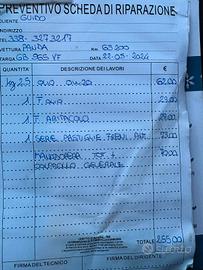 PREVENTIVO SCHEDA DI RIPARAZIONE
CLIENTE GUIDO
INDIRIZZO
TELEFONO 338-3273217
VETTURA PANDA Km 63200
TARGA GB 965 VF DATA 22-05-2024
Q. DESCRIZIONE DEI LAVORI €
kg 2.9 OLIO 62,00
1 F. ARIA 23,00
1 F. ABITACOLO 28,00
1 SERIE PASTIGLIE FRENI ANT 73,00
MANODOPERA TOT +
CONTROLLO GENERALE
TOTALE 255,00
FIRMA DEL TECNICO FIRMA DEL DIRIGENTE